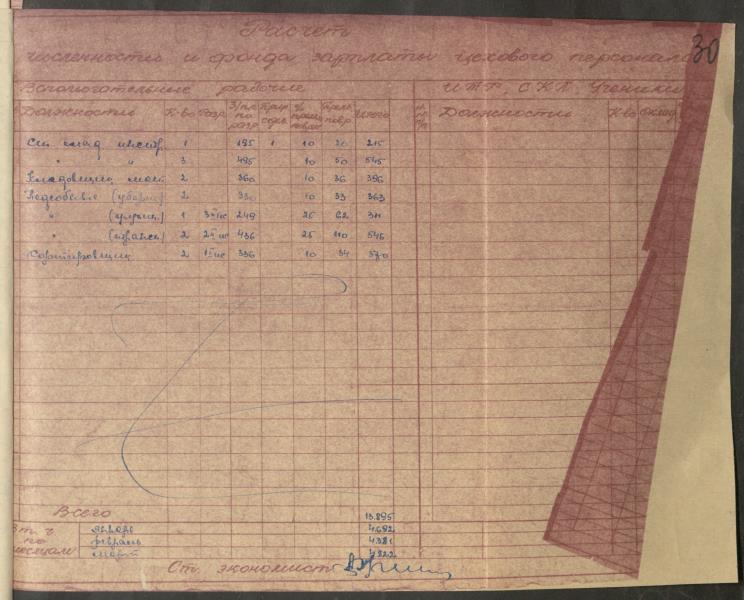 30
Расчет
численности и фонда зарплаты цехового персонала
Вспомогательные рабочие ИТР, СКП, Ученики
Должность К-во Разр. З/пл по разр % Итого № п/п Должность К-во Оклад
Ст. клад инстр. 1 195 1 10 20 215
" " 3 495 10 50 545
Кладовщица 2 360 10 36 396
Подсобные (уборщ) 2 330 10 33 363
" 1 249 25 62 311
" 2 436 25 110 546
Сортировщица 2 336 10 34 370
Всего 13.895
В т.ч. по месяцам
январь 4.692
февраль 4.381
март 4822
Ст. экономист